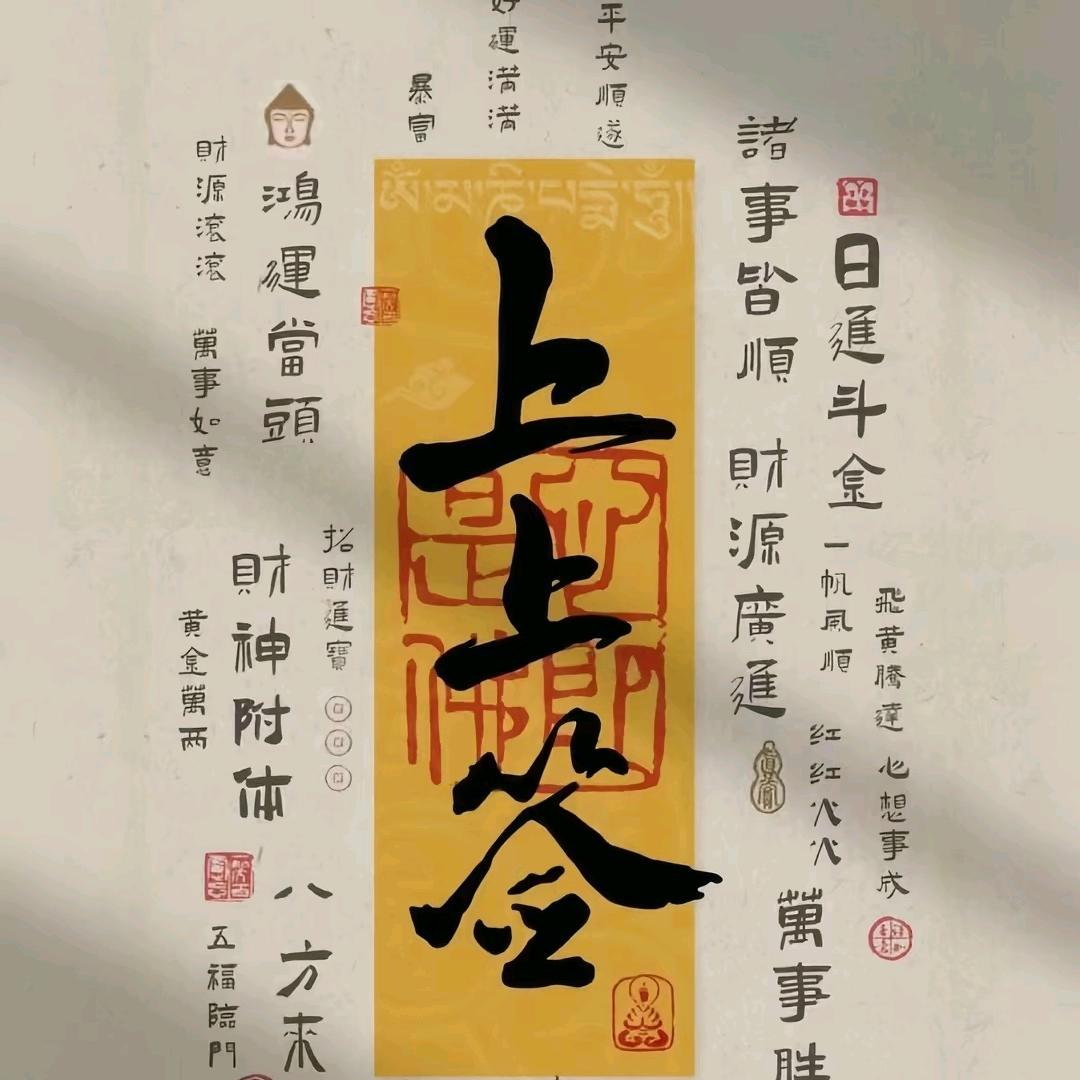 平安順遂
好運滿滿
暴富
日進斗金
諸事皆順
一帆風順
飛黃騰達
心想事成
財源廣進
紅紅火火
萬事胜
ༀམཎིཔདྨེཧཱུྃ
上上签
鴻運當頭
財源滾滾
萬事如意
招財進寶
財神附体
黃金萬两
八方來
五福臨門